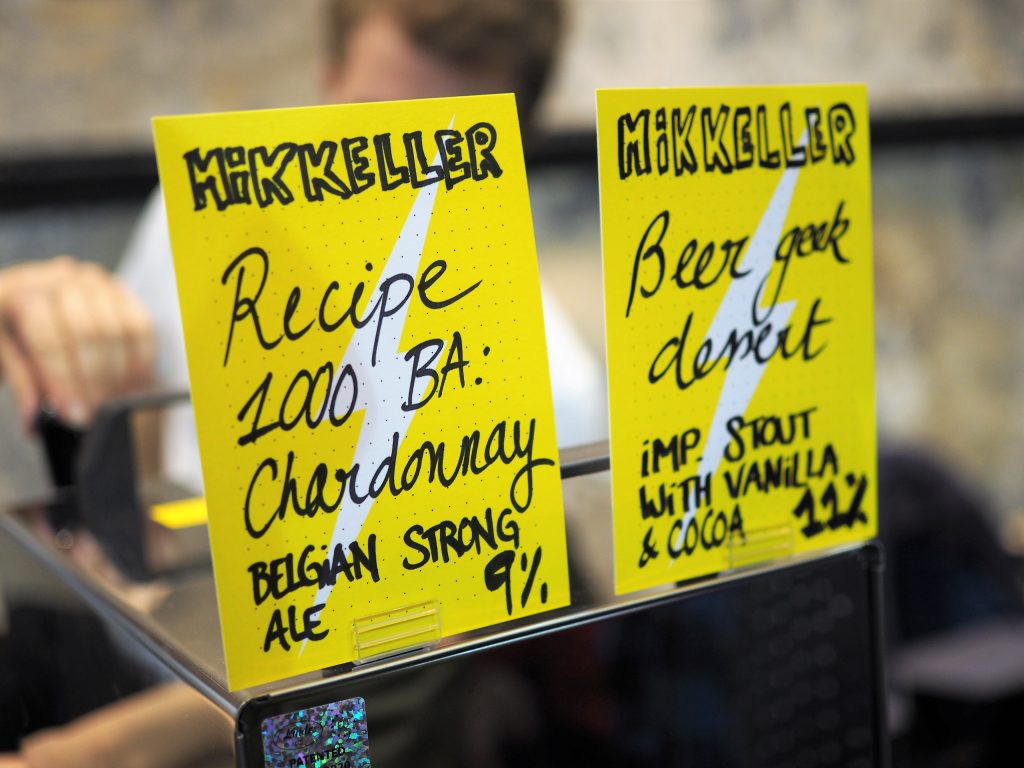 MiKKELLER
Recipe
1000 BA:
Chardonnay
BELGiAN STRONG
ALE 9%
MiKKELLER
Beer geek
desert
iMP. STOUT
WiTH VANILLA
& COCOA 11%
PATENTED